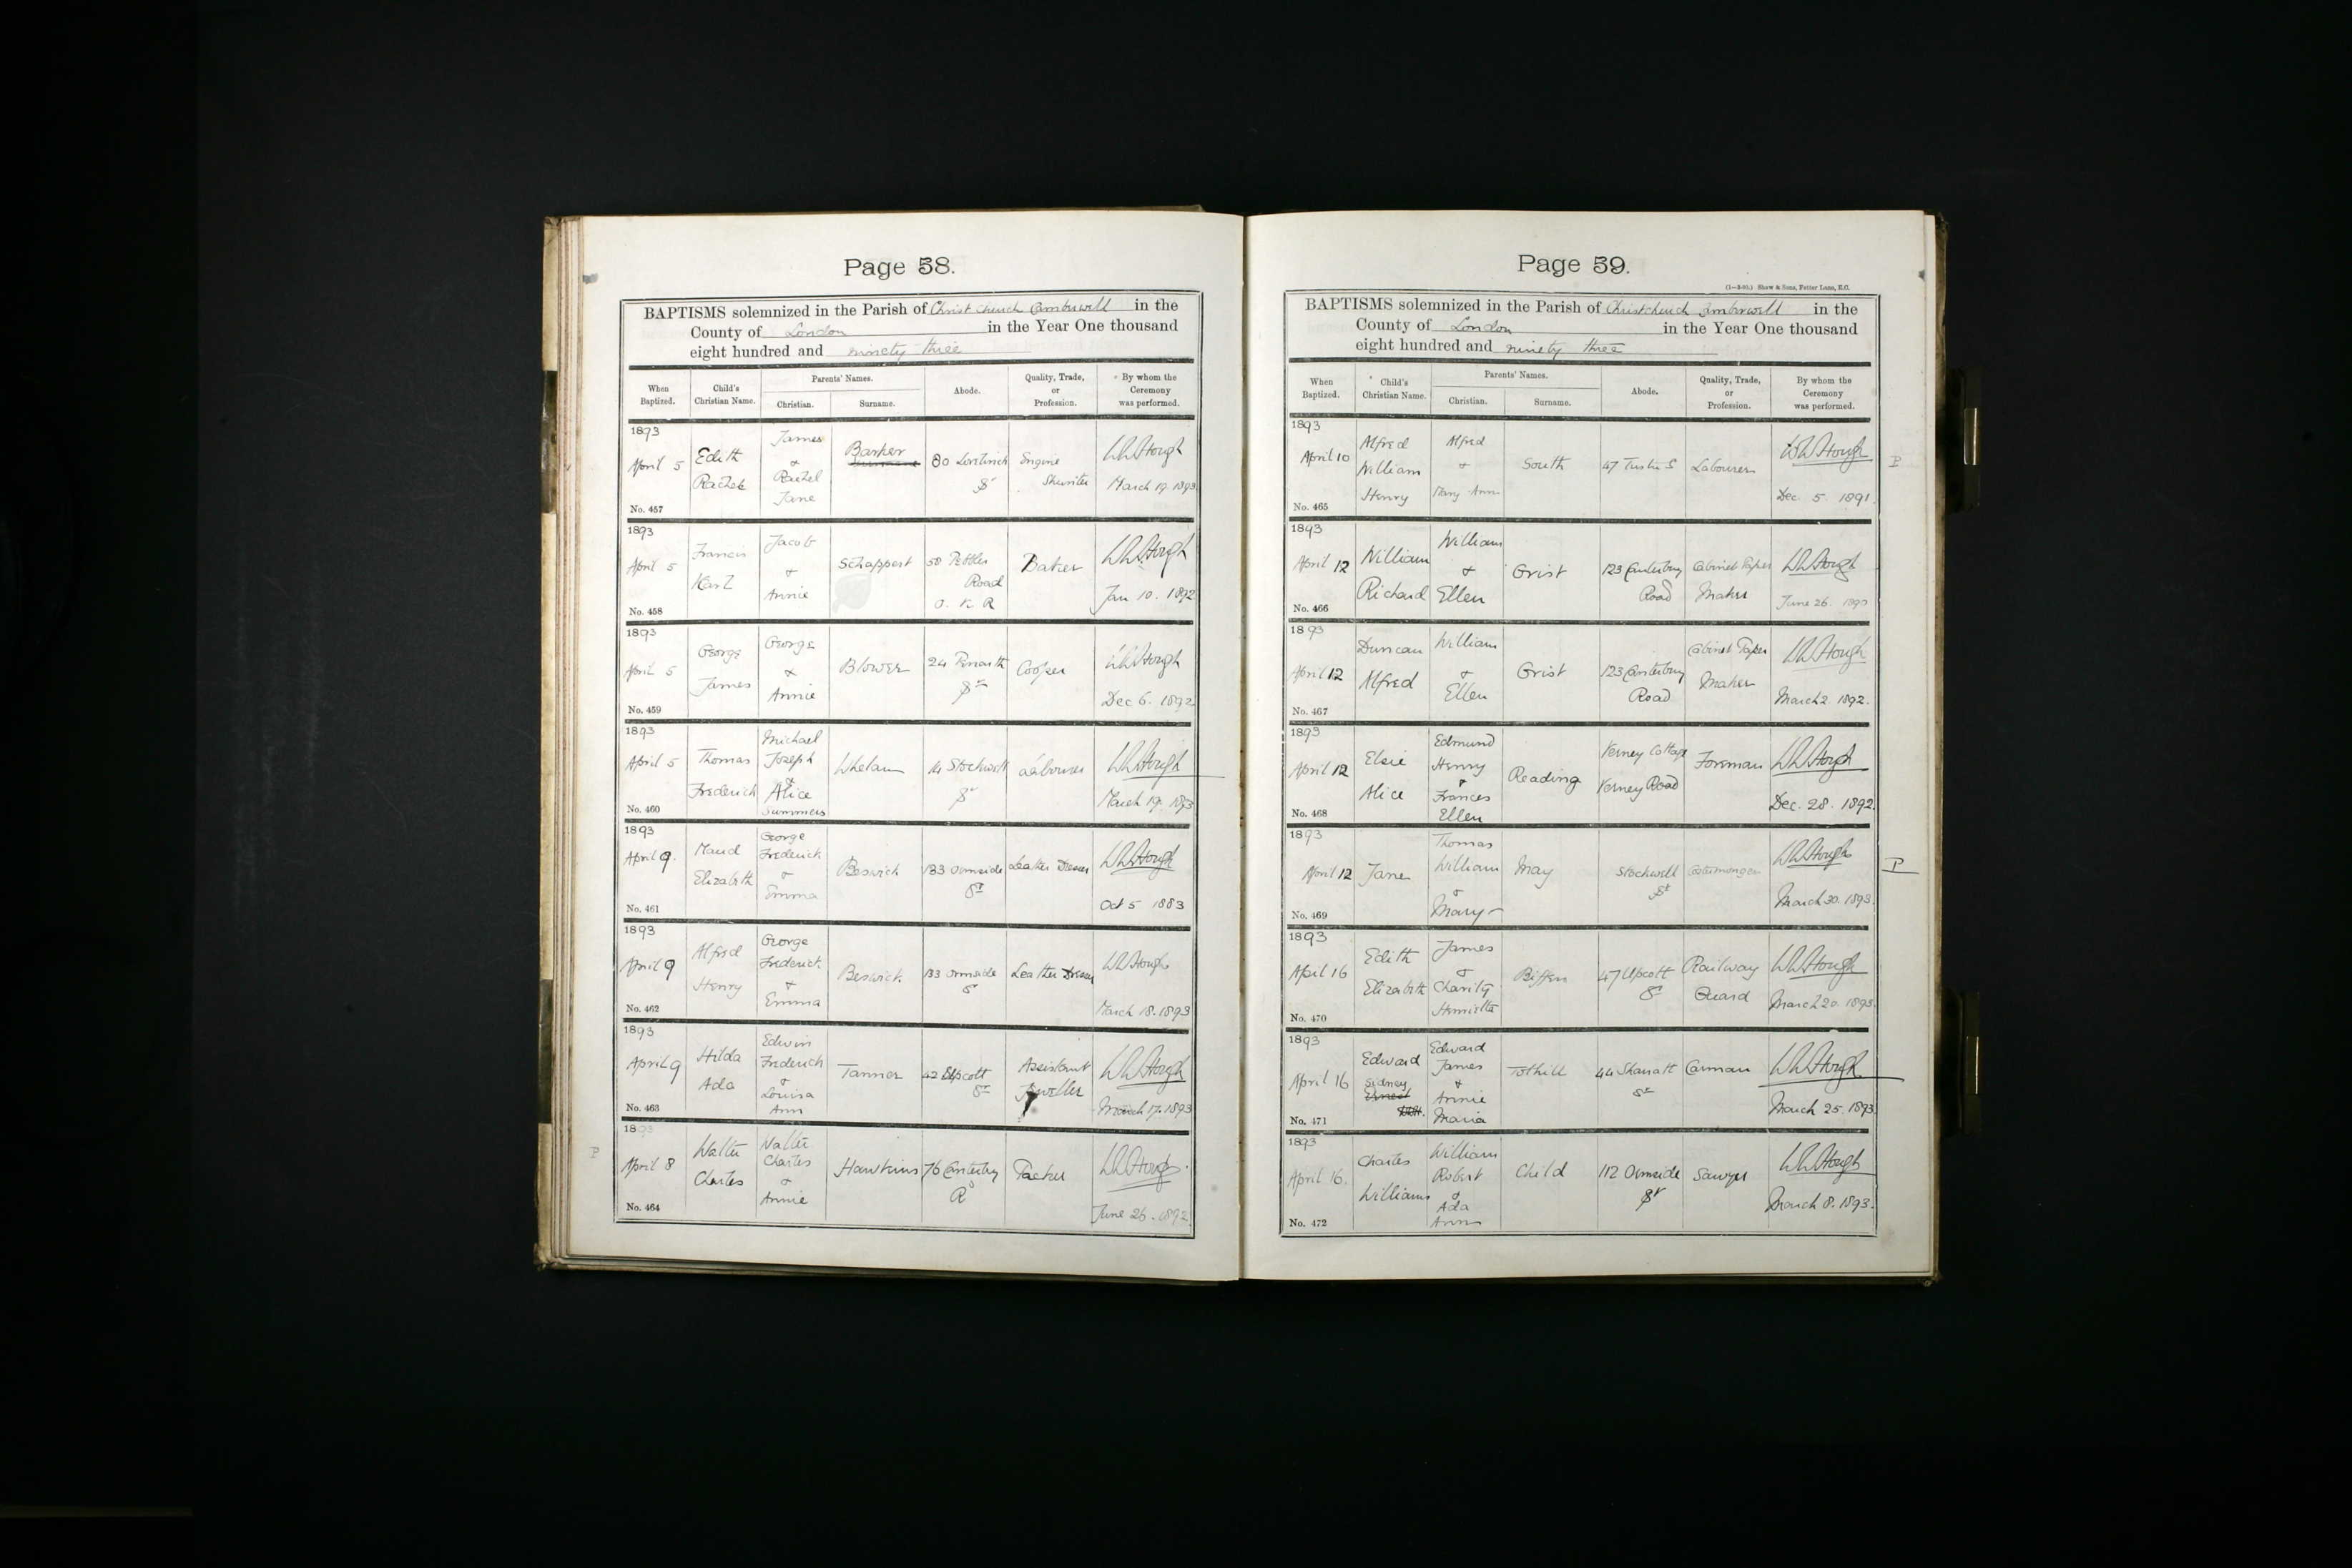 Page 58.
BAPTISMS solemnized in the Parish of Christ Church Camberwell in the
County of London in the Year One thousand
eight hundred and ninety three
When Baptized.
Child's Christian Name.
Parents' Names.
Christian.
Surname.
Abode.
Quality, Trade, or Profession.
By whom the Ceremony was performed.
1893
April 5
No. 457
Edith
Rachel
James
&
Rachel
Jane
Barker
80
St
Engine
Shunter
W W Hough
March 19 1893
1893
April 5
No. 458
Francis
Karl
Jacob
&
Annie
Schappert
58
Road
O. K. R
Baker
W W Hough
Jan 10. 1892
1893
April 5
No. 459
George
James
George
&
Annie
Blower
24 Penarth
St
Cooper
W W Hough
Dec 6. 1892
1893
April 5
No. 460
Thomas
Frederick
Michael
Joseph
&
Alice
Summers
Whelan
14 Stockwell
St
Labourer
W W Hough
March 19. 1893
1893
April 9.
No. 461
Maud
Elizabeth
George
Frederick
&
Emma
Beswick
133 Ormside
St
Leather Dresser
W W Hough
Oct 5 1883
1893
April 9
No. 462
Alfred
Henry
George
Frederick
&
Emma
Beswick
133 Ormside
St
Leather Dresser
W W Hough
March 18. 1893
1893
April 9
No. 463
Hilda
Ada
Edwin
Frederick
&
Louisa
Ann
Tanner
42 Upcott
St
Assistant
Jeweller
W W Hough
March 17. 1893
1893
April 8
No. 464
Walter
Charles
Walter
Charles
&
Annie
Hawkins
76 Canterbury
Rd
Packer
W W Hough
June 26. 1892
P
Page 59.
(1—3-90.) Shaw & Sons, Fetter Lane, E.C.
BAPTISMS solemnized in the Parish of Christchurch Camberwell in the
County of London in the Year One thousand
eight hundred and ninety three
When Baptized.
Child's Christian Name.
Parents' Names.
Christian.
Surname.
Abode.
Quality, Trade, or Profession.
By whom the Ceremony was performed.
1893
April 10
No. 465
Alfred
William
Henry
Alfred
&
Mary Ann
South
47 Tustin St
Labourer
W W Hough
Dec. 5 1891.
P
1893
April 12
No. 466
William
Richard
William
&
Ellen
Grist
123 Canterbury
Road
Cabinet
Maker
W W Hough
June 26. 1890
1893
April 12
No. 467
Duncan
Alfred
William
&
Ellen
Grist
123 Canterbury
Road
Cabinet
Maker
W W Hough
March 2. 1892.
1893
April 12
No. 468
Elsie
Alice
Edmund
Henry
&
Frances
Ellen
Reading
Verney Cottage
Verney Road
Foreman
W W Hough
Dec. 28. 1892.
1893
April 12
No. 469
Jane
Thomas
William
&
Mary
May
Stockwell
St
Costermonger
W W Hough
March 30. 1893.
P
1893
April 16
No. 470
Edith
Elizabeth
James
&
Charity
Henrietta
Biffen
47 Upcott
St
Railway
Guard
W W Hough
March 20. 1893.
1893
April 16
No. 471
Edward
Sidney
Ernest
Edward
James
&
Annie
Maria
Tothill
44 Sharratt
St
Carman
W W Hough
March 25. 1893
1893
April 16.
No. 472
Charles
William
William
Robert
&
Ada
Ann
Child
112 Ormside
St
Sawyer
W W Hough
March 8. 1893.